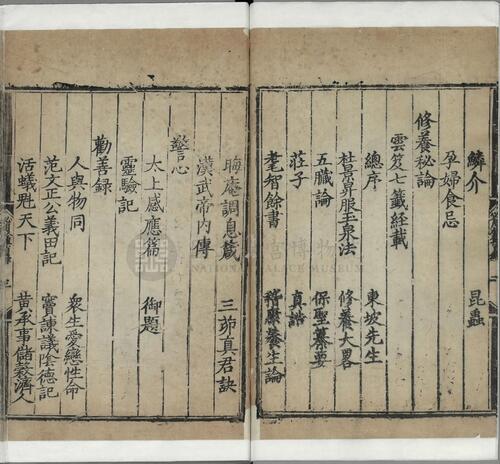 鱗介 昆蟲
孕婦食忌
修養秘論
雲笈七籤經載
總序 東坡先生
杜景昇服玉泉法 修養大畧
五臟論 保聖纂要
莊子 真誥
耄智餘書 嵇康養生論
晦庵調息箴 三茆真君訣
漢武帝內傳
警心
太上感應篇 御題
靈驗記
勸善録
人與物同 衆生愛戀性命
范文正公義田記 竇諫議陰德記
活蟻魁天下 黄承事儲榖濟人
NATIONAL PALACE MUSEUM